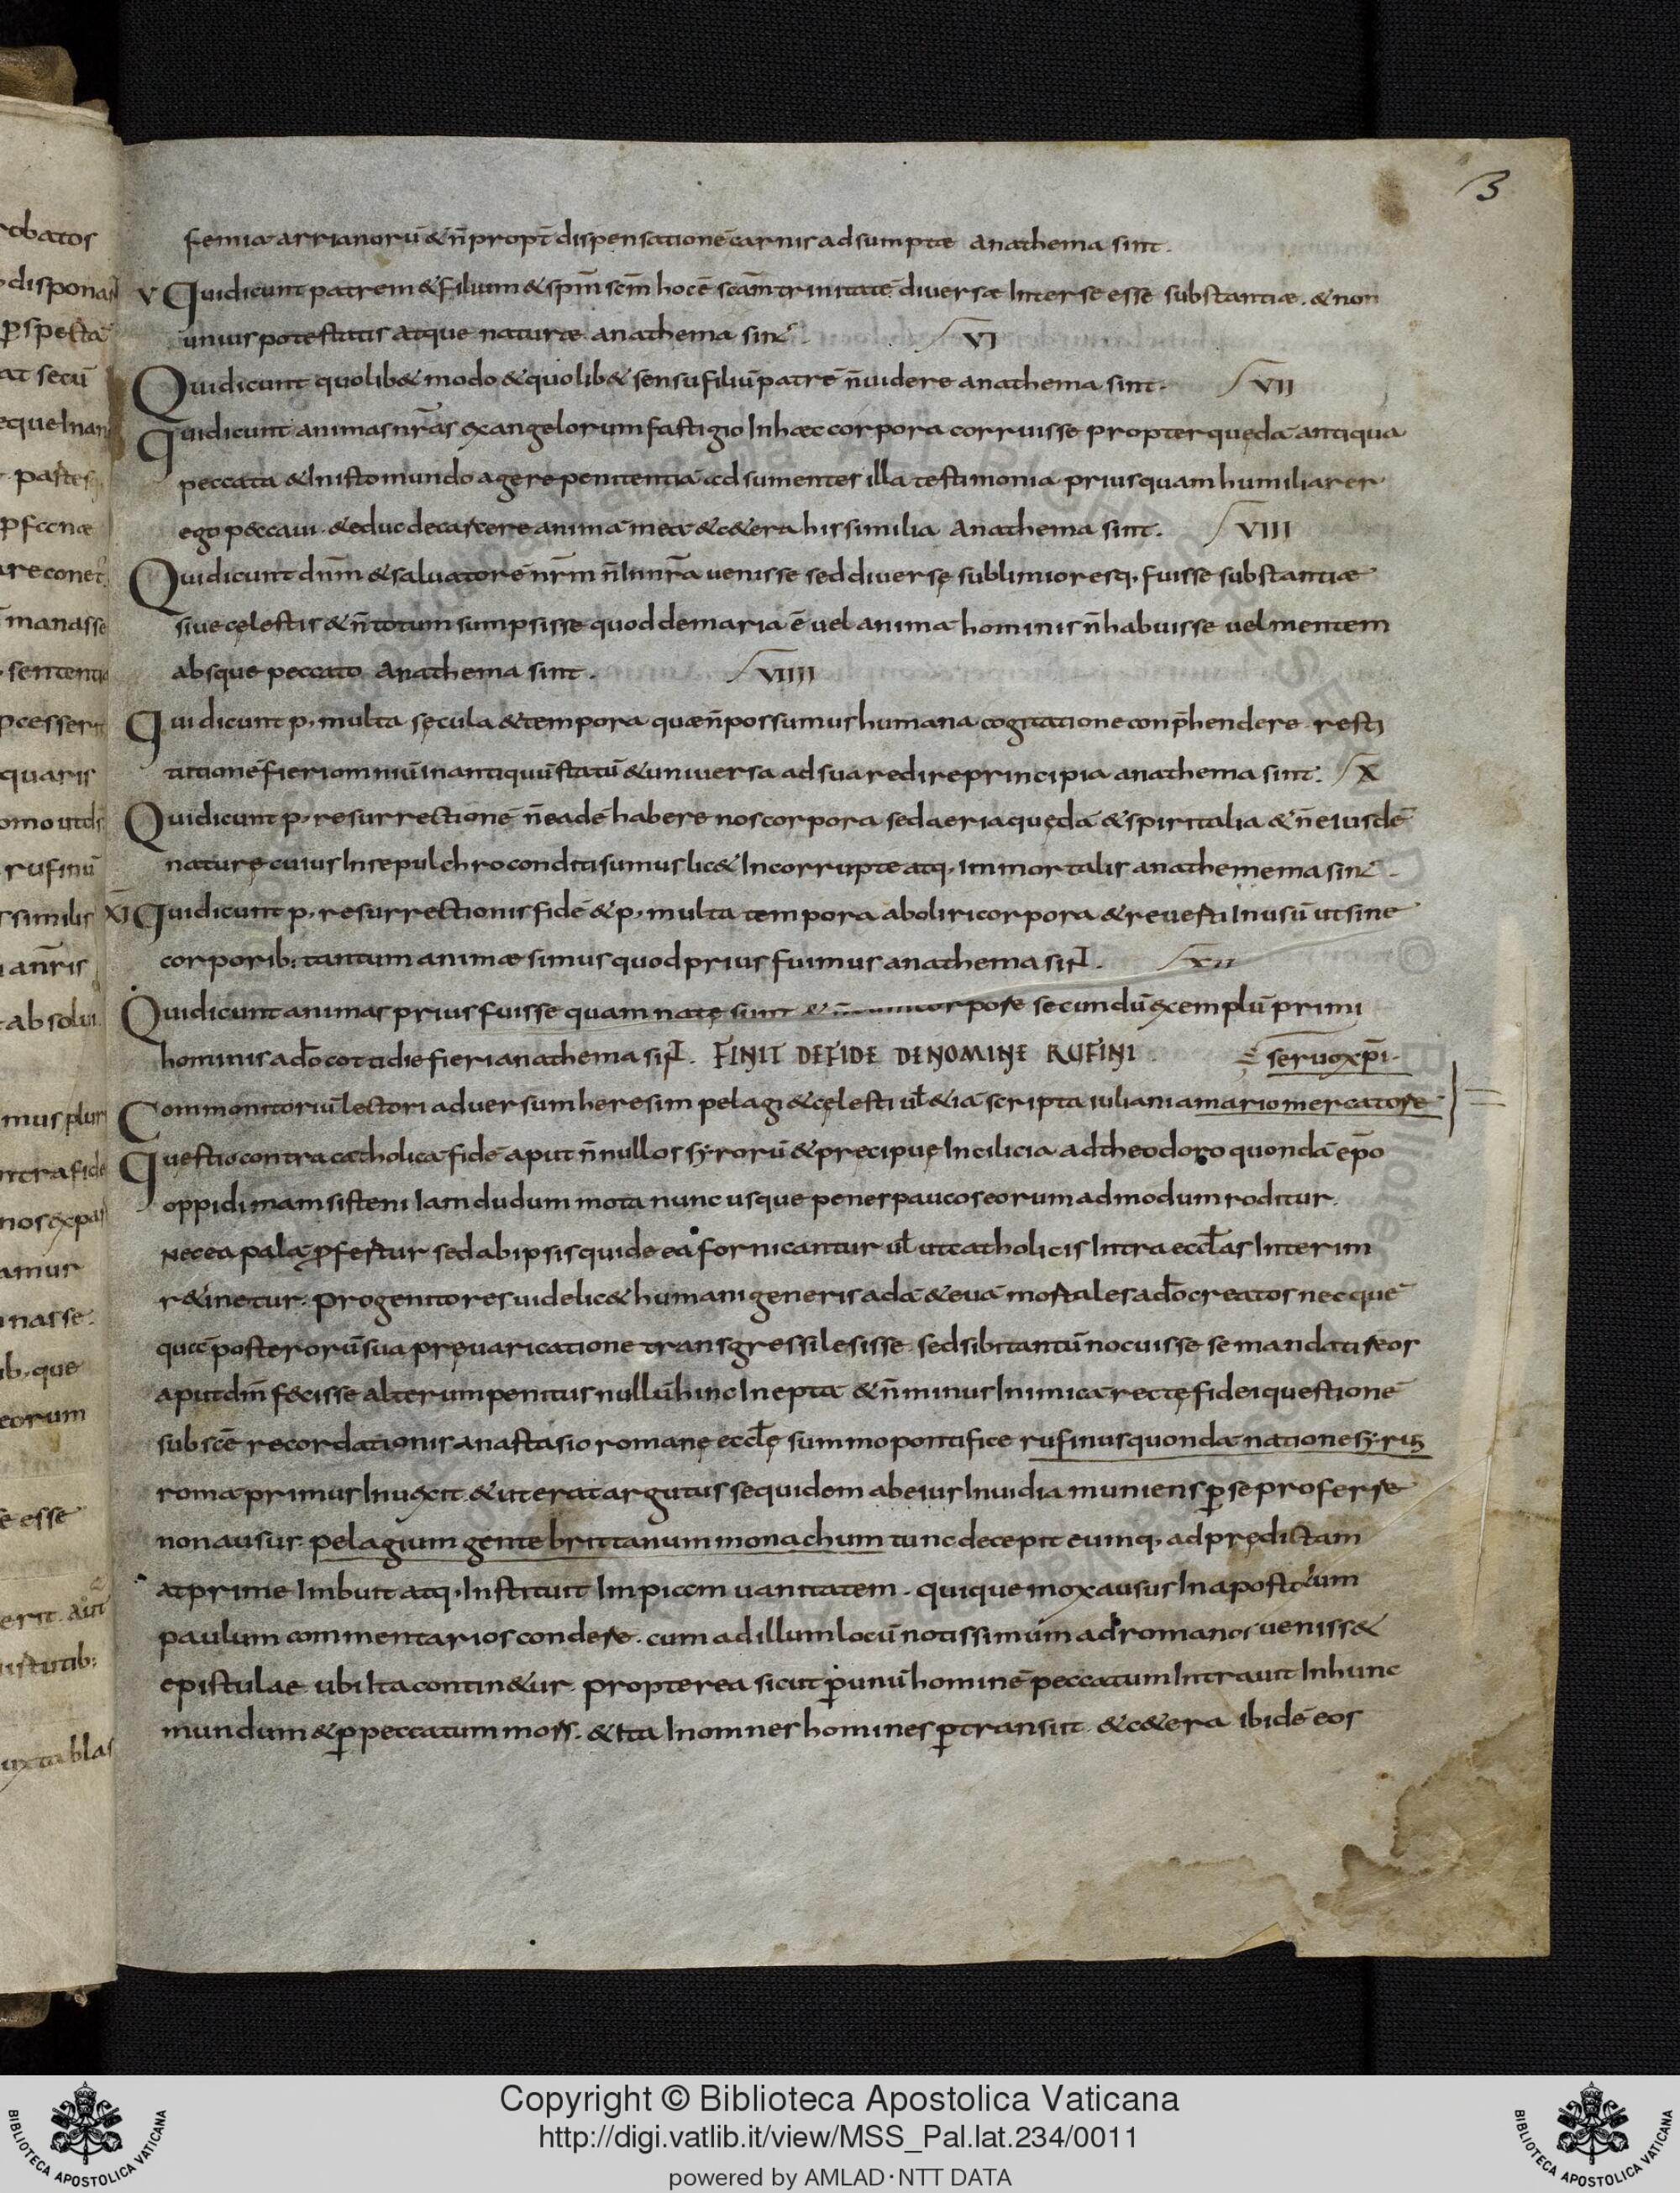 3
femia arrianorū & n̄ propt̄ dispensationē carnis adsumptæ anathema sint.
V Quidicunt patrem & filium & spm̄ scm̄ hoc ē scam̄ trinitatē diversæ Inter se esse substantiæ. & non
unius potestatis atque naturæ anathema sint. VI
Quidicunt quolib& modo & quolib& sensu filiū patrē n̄ videre anathema sint. VII
Quidicunt animas nr̄as ex angelorum fastigio In hæc corpora corruisse propter quędā antiqua
peccata & In isto mundo agere penitentiā adsumentes illa testimonia priusquam humiliarer
ego peccavi. & educ de carcere animā meā & c&era his similia Anathema sint. VIII
Quidicunt dnm̄ & salvatorē nr̄m n̄ In nr̄a venisse sed diversę sublimioresq, fuisse substantiæ
sive cęlestis & n̄ totum sumpsisse quod de maria ē vel animā hominis n̄ habuisse vel mentem
absque peccato Anathema sint. VIIII
Qui dicunt p, multa sęcula & tempora quæ n̄ possumus humana cogitatione conp̄hendere resti
tutionē fieri omniū in antiquū statū & universa ad sua redire principia anathema sint. X
Quidicunt p, resurrectionē n̄ eadē habere nos corpora sed aeria quędā & spiritalia & n̄ eiusdē
naturę cuius In sepulchro conditi sumus lic& Incorrupte atq, immortalis anathemema sint.
XI Quidicunt p, resurrectionis fidē & p, multa tempora aboliri corpora & reverti In usū ut sine
corporib: tantum animæ simus quod prius fuimus anathema sint. XII
Quidicunt animas prius fuisse quam natę sunt & n̄ cum corpore secundū exemplū primi
hominis a dō cottidie fieri anathema sint. FINIT DE FIDE DE NOMINE RUFINI. servo xp̄i.
Commonitoriū lectori adversum heresim pelagi & cęlesti ul̄ & iā scripta iuliani a mario mercatore
Questio contra catholicā fidē aput n̄nullos syrorū & precipuę In cilicia a theodoro quondā ep̄o
oppidi mamsisteni Iamdudum mota nunc usque penes paucos eorum admodum roditur.
Nec ea palā p̄fertur sed ab ipsis qui de ea fornicantur ul̄ ut catholicis Intra eccl̄as Interim
r&inetur. progenitores videlic& humani generis adā & evā mortales a dō creatos nec que
quā posterorū sua pręvaricatione transgressi lesisse sed sibi tantū nocuisse se mandati reos
aput dm̄ fecisse alterum penitus nullū hinc Ineptā & n̄ minus Inimicā rectę fidei questionē
sub scē recordationis anastasio romanę eccl̄ę summo pontifice rufinus quondā natione syrus
romā primus Invexit & ut erat argutus se quidem ab eius Invidia muniens p̄ se proferre
non ausus pelagium gente brittanum monachum tunc decepit eumq, ad prędictam
atprime Imbuit atq, Instituit Impiam vanitatem. quique mox ausus In apostolum
paulum commentarios condere. cum ad illum locū notissimum ad romanos veniss&
epistulae ubi Ita contin&ur. propterea sicut p̄ unū hominē peccatum Intravit In hunc
mundum & p̄ peccatum mors. & Ita In omnes homines p̄transiit. & c&era Ibidē eos
robatos
disponas
p̄spectā
at secū
eque Inan
partes
p̄fecnæ
are conet.
manasse
sententia
pcesserit
quaris
omo ut ds̄
rufinū
similis
an̄ris
absolui
mus pluri
ntra fidē
nos expas
amus
nasse.
ub, que
eorum
e esse
erit. aut
ustutib:
uxta blas
Copyright © Biblioteca Apostolica Vaticana
http://digi.vatlib.it/view/MSS_Pal.lat.234/0011
powered by AMLAD·NTT DATA
BIBLIOTECA APOSTOLICA VATICANA
BIBLIOTECA APOSTOLICA VATICANA